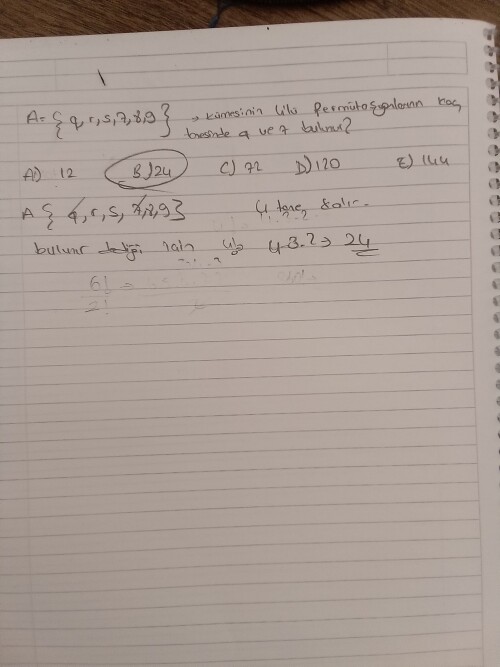 A= {q, r, s, 7, 8, 9} → kümesinin 4'lü Permütasyonlarının kaç
tanesinde q ve 7 bulunur?
A) 12 B) 24 C) 72 D) 120 E) 144
A { q, r, s, 7, 8, 9 } 4 tane kalır.
bulunur için 4.3.2 → 24
6!
2!